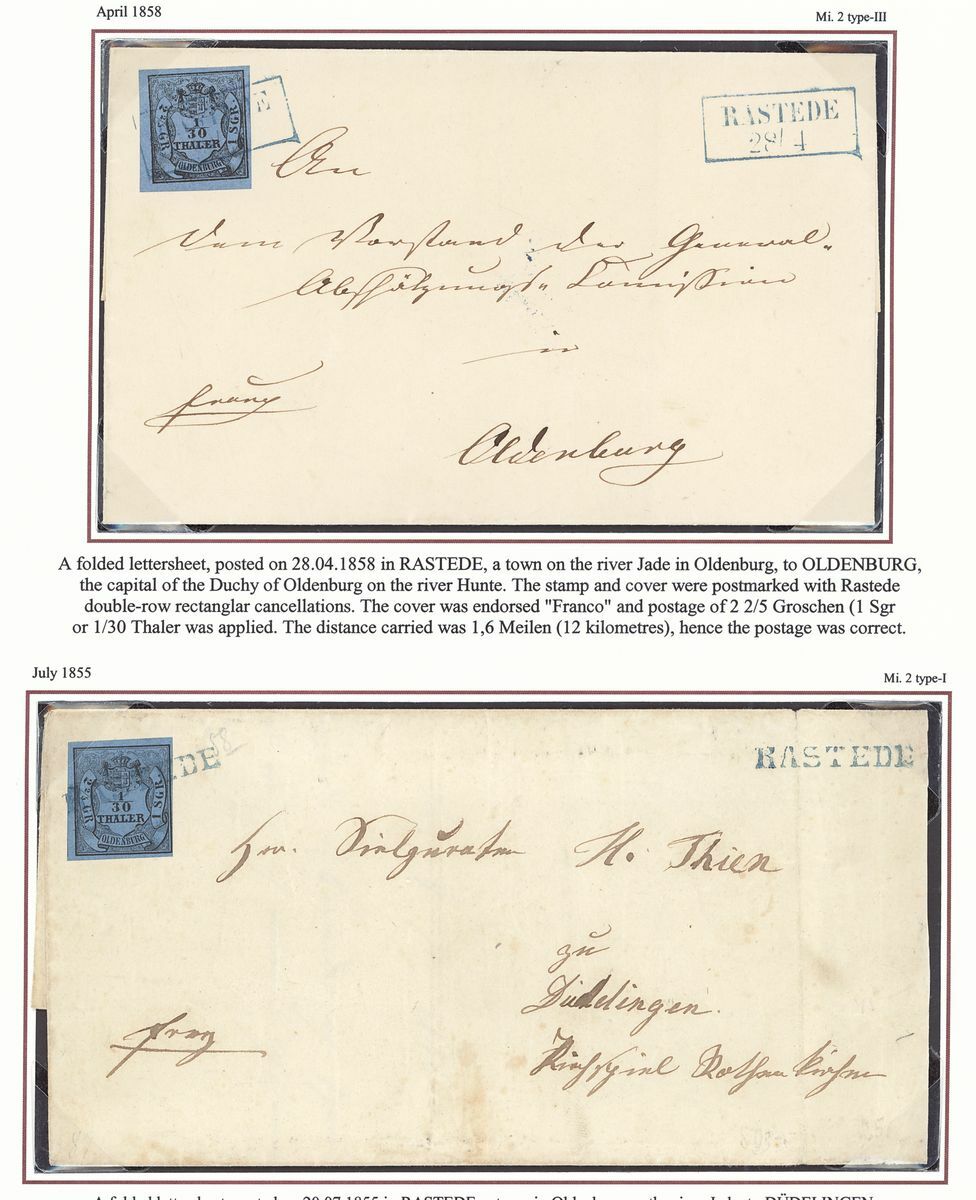 April 1858
Mi. 2 type-III
E
1
30
THALER
1 SGR.
OLDENBURG
RASTEDE
28/4
An
dem Vorstand der General-
Abschätzungs- Commission
in
franco
Oldenburg
A folded lettersheet, posted on 28.04.1858 in RASTEDE, a town on the river Jade in Oldenburg, to OLDENBURG,
the capital of the Duchy of Oldenburg on the river Hunte. The stamp and cover were postmarked with Rastede
double-row rectanglar cancellations. The cover was endorsed "Franco" and postage of 2 2/5 Groschen (1 Sgr
or 1/30 Thaler was applied. The distance carried was 1,6 Meilen (12 kilometres), hence the postage was correct.
July 1855
Mi. 2 type-I
DE
1
30
THALER
1 SGR.
OLDENBURG
RASTEDE
H. Thien
zu
Düddingen.
Kirchspiel Rothenkirchen